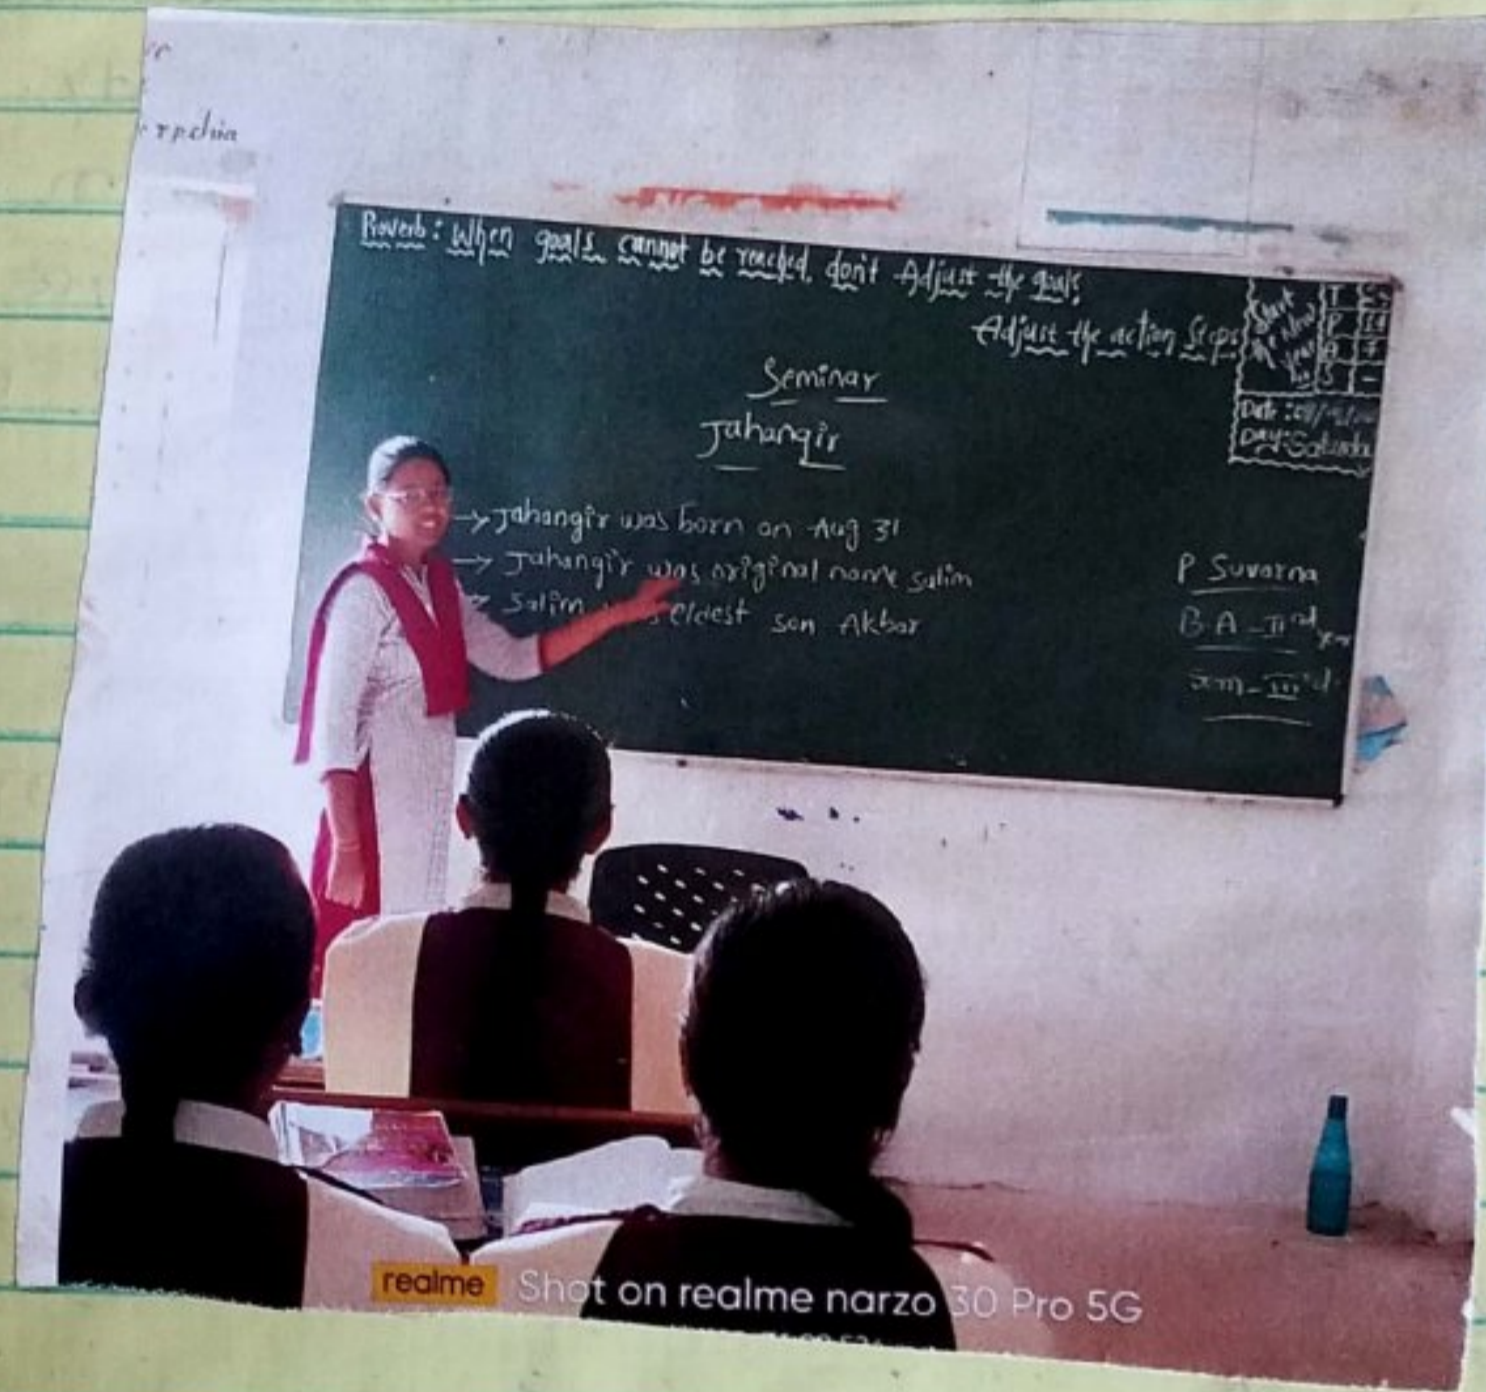 Proverb: When goals cannot be reached, don't Adjust the goals,
Adjust the action steps
Start
the New
Year
T
P
A 7
S -
Date:
Day: Saturda
Seminar
Jahangir
→ Jahangir was born on Aug 31
→ Jahangir was original name salim
Salim eldest son Akbar
P Suvarna
B.A - IInd year
- IIIrd
realme Shot on realme narzo 30 Pro 5G